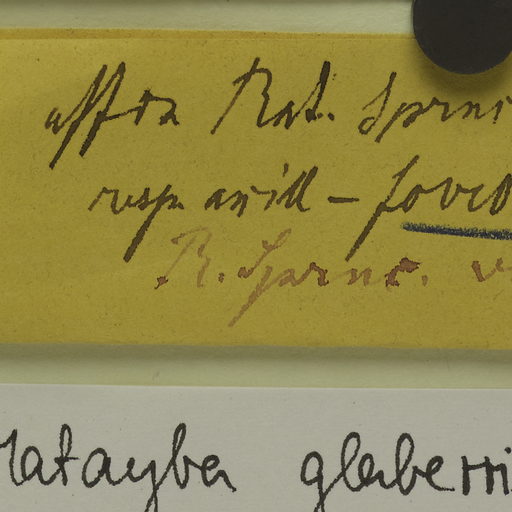 affin Rad. Spruc
resp. axill – foveo
R. Spruc. v
Matayba glaberri